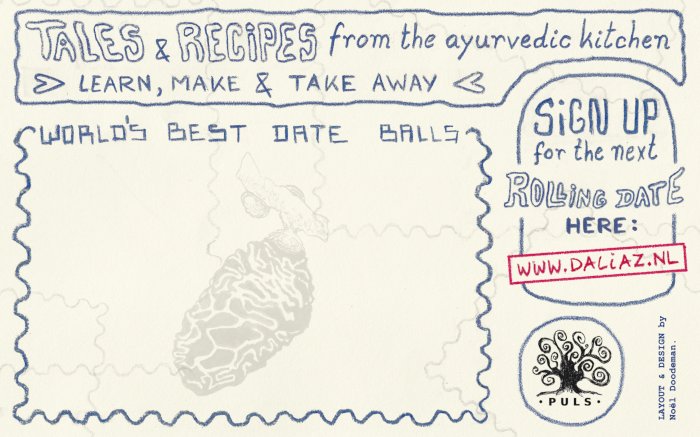 TALES & RECIPES from the ayurvedic kitchen
> LEARN, MAKE & TAKE AWAY <
WORLD'S BEST DATE BALLS
SIGN UP
for the next
ROLLING DATE
HERE:
WWW.DALIAZ.NL
· PULS ·
LAYOUT & DESIGN by
Noël Doodeman.